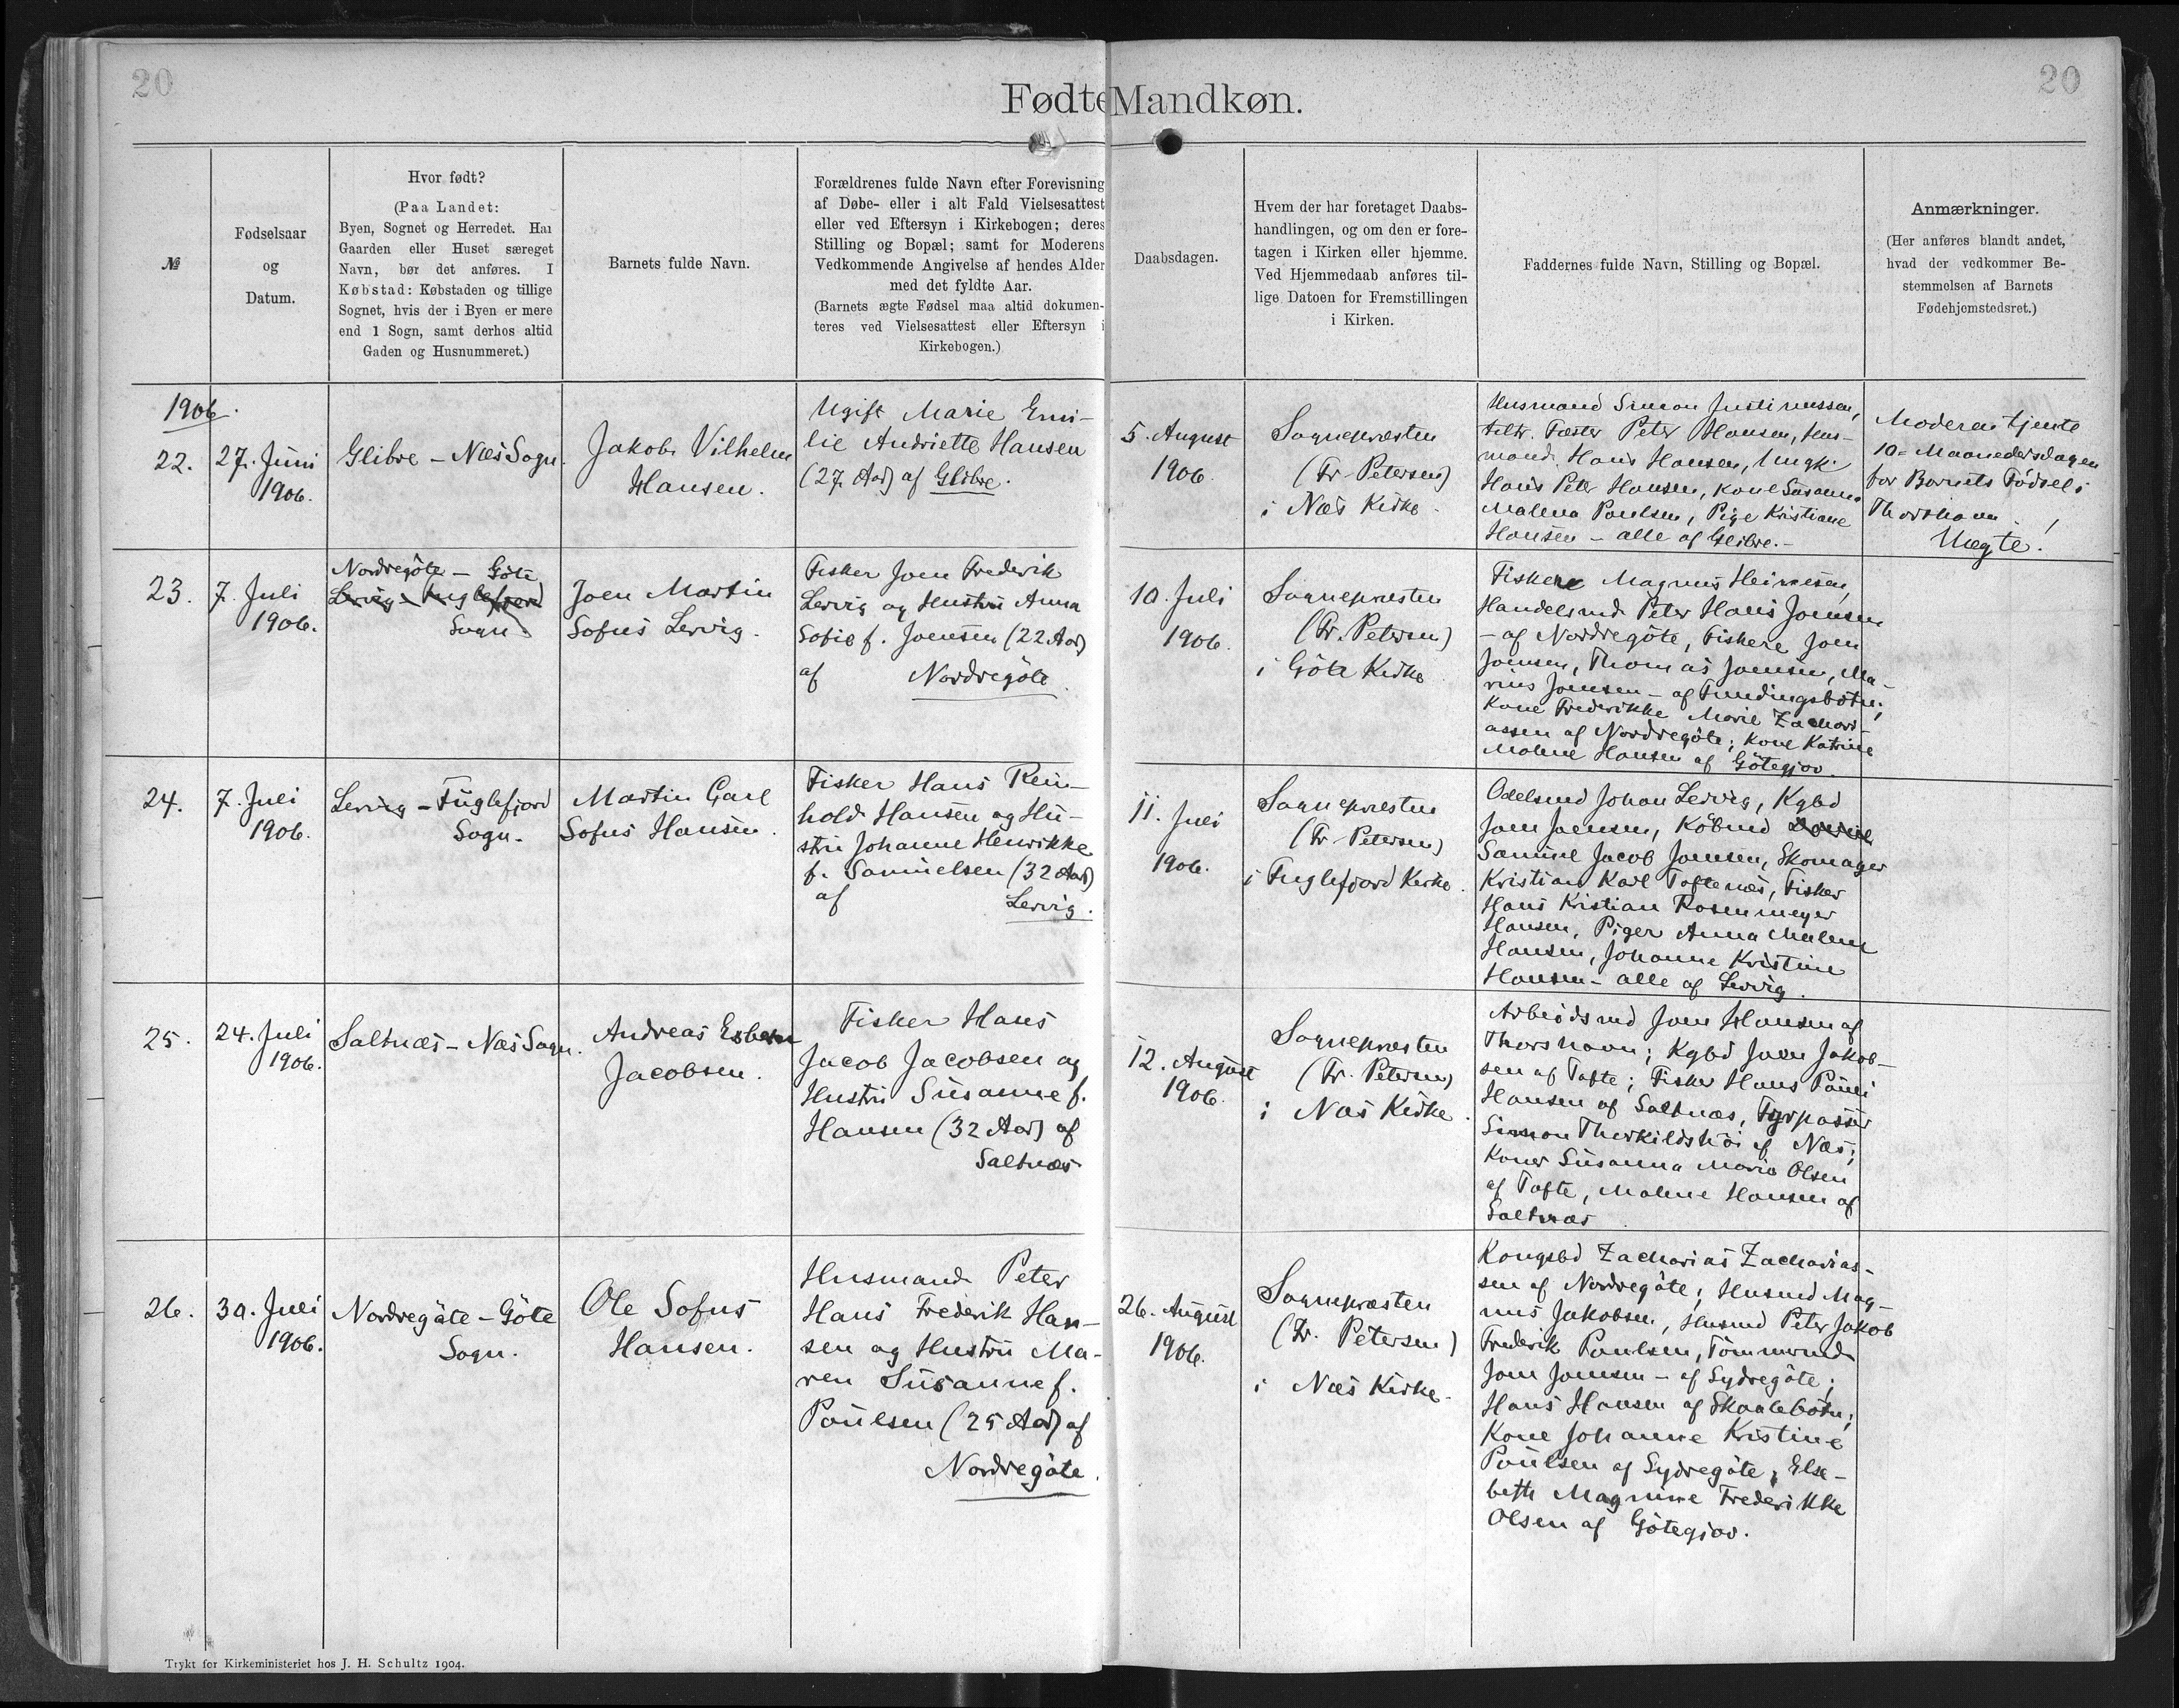 20
20
Fødte Mandkøn.
№
Fødselsaar
og
Datum.
Hvor født?
(Paa Landet:
Byen, Sognet og Herredet. Har
Gaarden eller Huset særeget
Navn, bør det anføres. I
Købstad: Købstaden og tillige
Sognet, hvis der i Byen er mere
end 1 Sogn, samt derhos altid
Gaden og Husnummeret.)
Barnets fulde Navn.
Forældrenes fulde Navn efter Forevisning
af Døbe- eller i alt Fald Vielsesattest
eller ved Eftersyn i Kirkebogen; deres
Stilling og Bopæl; samt for Moderens
Vedkommende Angivelse af hendes Alder
med det fyldte Aar.
(Barnets ægte Fødsel maa altid dokumen-
teres ved Vielsesattest eller Eftersyn i
Kirkebogen.)
Daabsdagen.
Hvem der har foretaget Daabs-
handlingen, og om den er fore-
tagen i Kirken eller hjemme.
Ved Hjemmedaab anføres til-
lige Datoen for Fremstillingen
i Kirken.
Faddernes fulde Navn, Stilling og Bopæl.
Anmærkninger.
(Her anføres blandt andet,
hvad der vedkommer Be-
stemmelsen af Barnets
Fødehjemstedsret.)
1906.
22.
27. Juni
1906.
Glibre - Næs Sogn.
Jakob Vilhelm
Hansen.
Ugift Marie Emi-
lie Andriette Hansen
(27 Aar) af Glibre.
5. August
1906.
Sognepræsten
(Fr. Petersen)
i Næs Kirke.
Husmand Simon Justinussen,
Fæster Peter Hansen, Hus-
mand Hans Hansen, Ungk.
Hans Peter Hansen, Kone Susanna
Malena Poulsen, Pige Kristiane
Hansen - alle af Glibre.-
Moderen tjente
10-Maanedersdagen
før Barnets Fødsel i
Thorshavn.
Uægte!
23.
7. Juli
1906.
Nordregöte - Göte
Lervig - Fuglefjord
Sogn.
Joen Martin
Sofus Lervig.
Fisker Joen Frederik
Lervig og Hustru Anna
Sofie f. Joensen (22 Aar)
af Nordregöte.
10. Juli
1906.
Sognepræsten
(Fr. Petersen)
i Göte Kirke
Fiskere Magnus Heinesen,
Handelsmd Peter Hans Joensen
- af Nordregöte, Fiskere Joen
Joensen, Thomas Joensen, Ma-
rius Joensen - af Fundingsbotn;
Kone Frederikke Marie Zachari-
assen af Nordregöte; Kone Katrine
Malene Hansen af Götegjov.
24.
7. Juli
1906.
Lervig - Fuglefjord
Sogn.
Martin Carl
Sofus Hansen.
Fisker Hans Rein-
hold Hansen og Hu-
stru Johanne Henrikke
f. Samuelsen (32 Aar)
af Lervig.
11. Juli
1906.
Sognepræsten
(Fr. Petersen)
i Fuglefjord Kirke.
Odelsmd Johan Lervig, Kgbd
Joen Joensen, Köbmd
Samuel Jacob Joensen, Skomager
Kristian Karl Toftenæs, Fisker
Hans Kristian Rosenmeyer
Hansen, Piger Anna Malene
Hansen, Johanne Kristine
Hansen - alle af Lervig.
25.
24. Juli
1906.
Saltnæs - Næs Sogn.
Andreas Esbern
Jacobsen.
Fisker Hans
Jacob Jacobsen og
Hustru Susanne f.
Hansen (32 Aar) af
Saltnæs
12. August
1906.
Sognepræsten
(Fr. Petersen)
i Næs Kirke.
Arbeidsmd Joen Hansen af
Thorshavn; Kgbd Joen Jakob-
sen af Tofte; Fisker Hans Pauli
Hansen af Saltnæs, Fyrpasser
Simon Therkildshöi af Næs;
Koner Susanna Maria Olsen
af Tofte, Malene Hansen af
Saltnæs
26.
30. Juli
1906.
Nordregöte - Göte
Sogn.
Ole Sofus
Hansen.
Husmand Peter
Hans Frederik Han-
sen og Hustru Ma-
ren Susanne f.
Poulsen (25 Aar) af
Nordregöte.
26. August
1906.
Sognepræsten
(Fr. Petersen)
i Næs Kirke.
Kongsbd Zacharias Zacharias-
sen af Nordregöte; Husmd Mag-
nus Jakobsen, Husmd Peter Jakob
Frederik Poulsen, Tömmermd
Joen Joensen - af Sydregöte;
Hans Hansen af Skaalebotn;
Kone Johanne Kristine
Poulsen af Sydregöte; Else-
beth Magnine Frederikke
Olsen af Götegjov.
Trykt for Kirkeministeriet hos J. H. Schultz 1904.